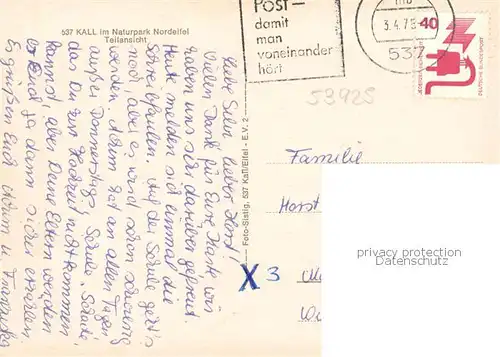 537 KALL im Naturpark Nordeifel
Teilansicht
POST—
damit
man
voneinander
hört
mb
3.4.75
537
40
DEUTSCHE BUNDESPOST
53925
Liebe Silvi, lieber Horst!
Vielen Dank für Eure Karte, wir
haben uns sehr darüber gefreut.
Heute melden sich einmal die
Schreibfaulen. Auf der Schule geht's
noch, aber es wird schon schwierig
werden. Achim hat an allen Tagen
außer Donnerstags, Schule. Schade,
das Du zur Hochzeit nicht kommen
kannst, aber Deine Eltern werden
es Euch ja dann sicher erzählen
Es grüßen Euch Achim u. Franziska
Foto-Sistig, 537 Kall/Eifel - E.V. 2
Familie
Horst
X 3
privacy protection
Datenschutz